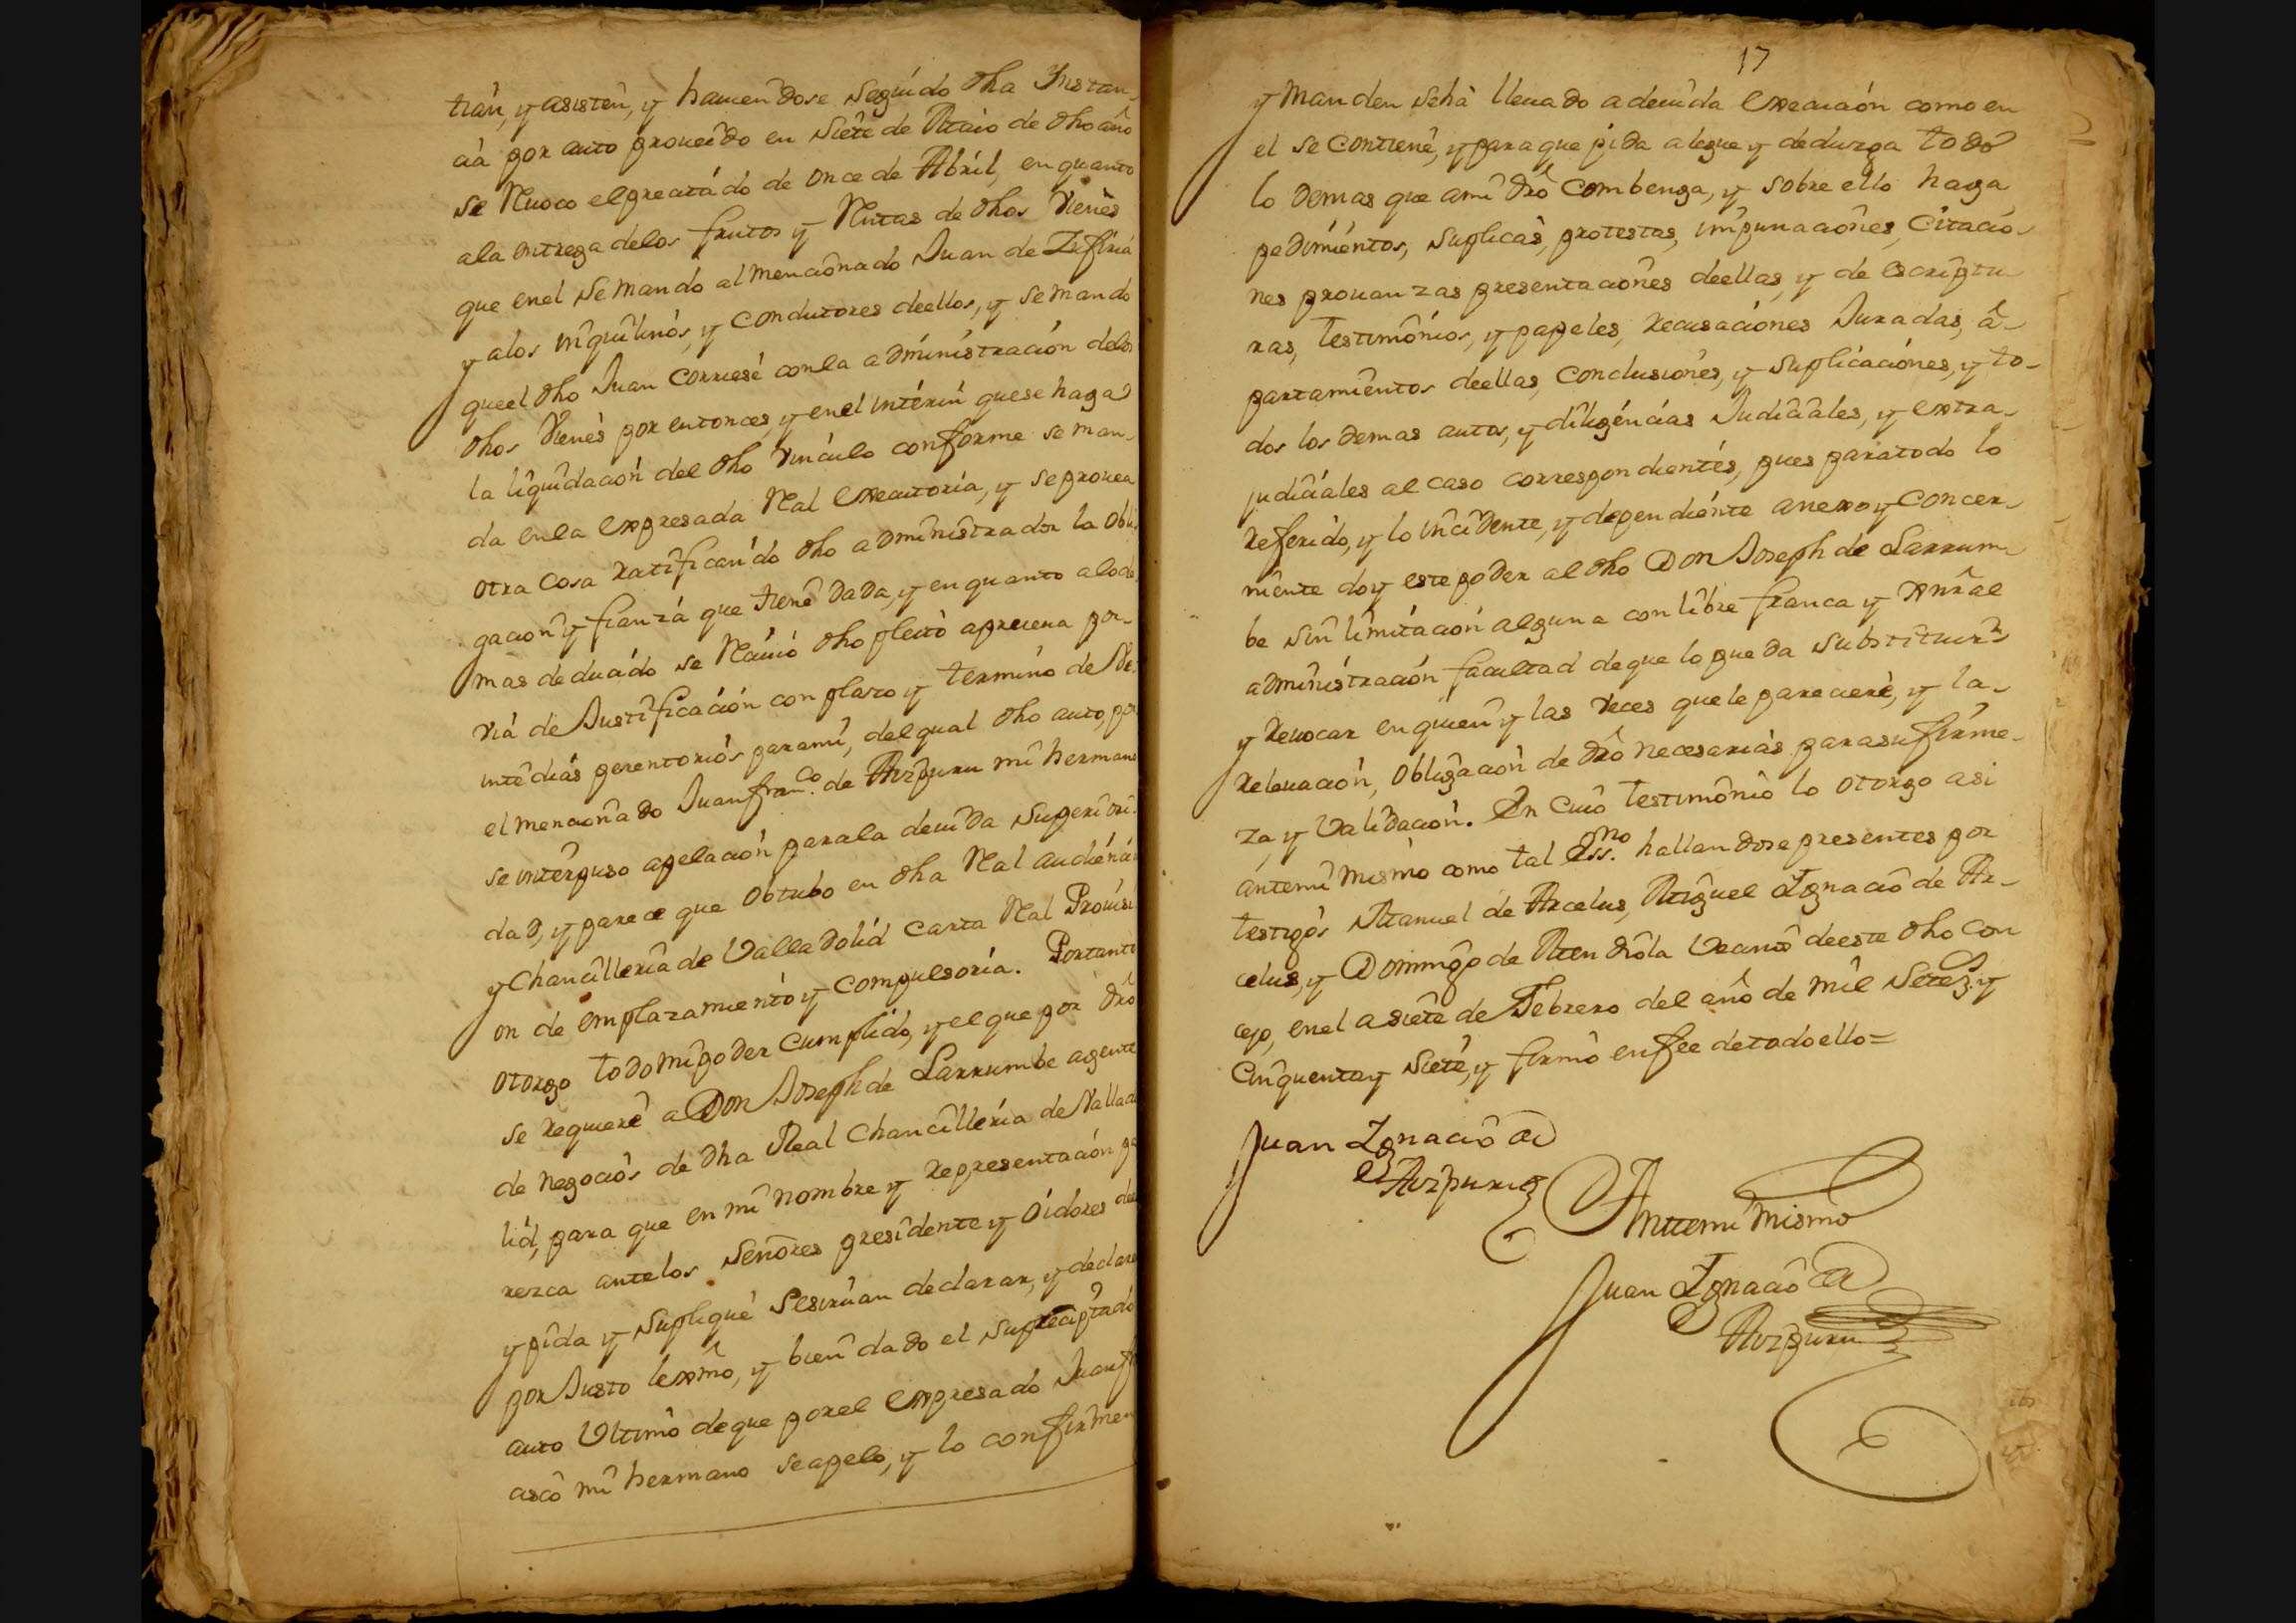 tian, y asisten, y haviendose seguido dha Instan-
cia por auto proveido en siete de Maio de dho año
se Revoco el precitado de once de Abril, en quanto
ala entrega delos frutos y Rentas de dhos Vienes
que enel se mando al mencionado Juan de Zufiria
y alos inquilinos, y condutores deellos, y se mando
queel dho Juan corriese conla administracion delos
dhos Vienes por entonces, y enel interin quese haga
la liquidacion del dho vinculo conforme se man-
da enla expresada Real executoria, y se provea
otra cosa ratificando dho administrador la obli-
gacion y fianza que tiene dada, y en quanto alode
mas deducido se Recivió dho pleito aprueva por
via de Justificacion con plazo y termino de Ve-
inte dias perentorios para mi, del qual dho auto, por
el mencionado Juan fran.co de Aizpuru mi hermano
se interpuso apelacion parala devida superiori-
dad, y parece que obtubo en dha Real audiencia
y Chancilleria de Valladolid Carta Real Provisi
on de emplazamiento y compulsoria. Portanto
otorgo todo mi poder cumplido, y el que por dro
se requiere a Don Joseph de Larrumbe agente
de negocios de dha Real Chancilleria de Vallado
lid, para que en mi nombre y representacion pa
rezca antelos Señores presidente y oidores de
y pida y suplique sesirvan declarar, y declare
por Justo lexmo, y bien dado el suprecitado
auto ultimo deque porel expresado Juan fr
asco mi hermano seapelo, y lo confirmen
17
y manden seha llevado a devida execucion como en
el se contiene, y para que pida alegue y deduzga todo
lo demas que ami dro combenga, y sobre ello haga
pedimientos, suplicas, protestas, impunaciones, Citacio-
nes provanzas presentaciones deellas, y de escriptu-
ras, testimonios, y papeles, recusaciones Juradas, a-
partamientos deellas, conclusiones, y suplicaciones, y to-
dos los demas autos, y diligencias Judiciales, y extra-
judiciales al caso correspondientes, pues paratodo lo
referido, y lo incidente, y dependiente anexo y concer-
niente doy este poder al dho Don Joseph de Larrum-
be sin limitacion alguna con libre franca y xnrāl
administracion facultad deque lo pueda substituir
y revocar en quien y las veces que le pareciere, y la-
relevacion, obligacion de dro necesarias parasu firme-
za, y validacion. En cuio testimonio lo otorgo asi
antemi mismo como tal Ess.no hallandose presentes por
testigos Manuel de Arcelus, Miguel Ignacio de Ar-
celus, y Domingo de Mendiola vecinos deeste dho con
cejo, enel a siete de Febrero del año de mil setez.y
cinquenta y siete, y firmo enfee detodoello=
Juan Ignacio de
Aizpuru
Anttemi mismo
Juan Ignacio de
Aizpuru